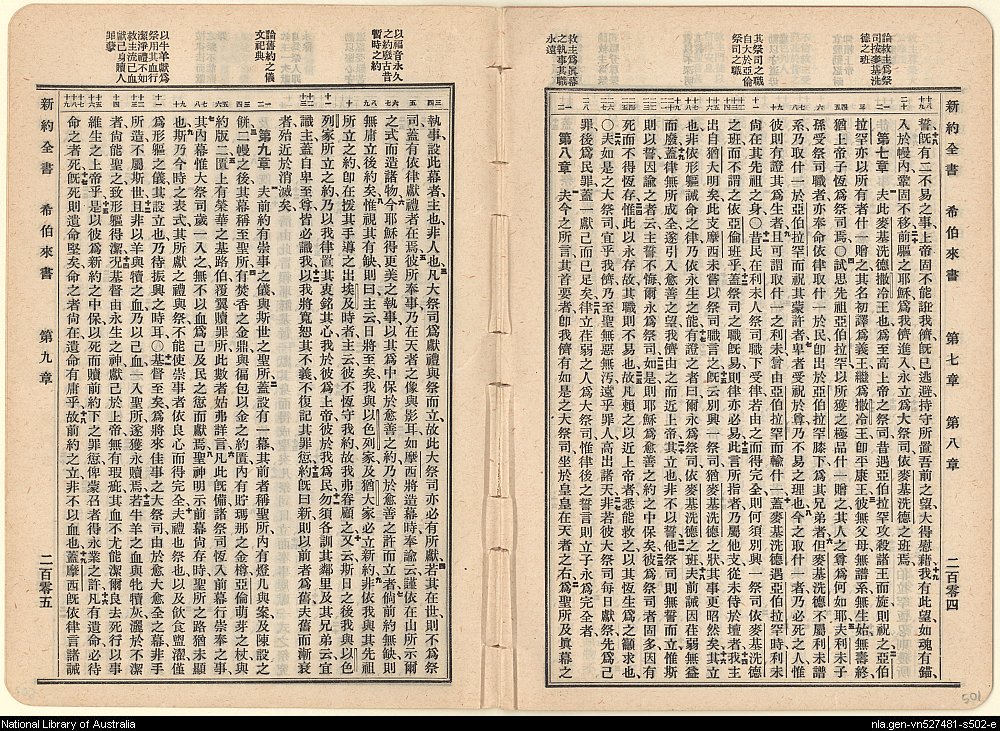 新約全書 希伯來書 第七章 第八章 二百零四
論救主爲祭司按麥基洗德之班
其祭司之職自大於亞倫祭司之職
救主爲眞幕之執事其職永遠
誓旣有二不易之事上帝固不能誑我儕旣已逃避持守所置吾前之望大得慰藉我有此望如魂有錨
入於幔內鞏固不移前驅之耶穌爲我儕進入永立爲大祭司依麥基洗德之班焉
第七章 夫此麥基洗德撒冷王也爲至高上帝之祭司昔遇亞伯拉罕攻殺諸王而旋則祝之亞伯
拉罕亦以所有者什一贈之其名初譯爲義王繼爲撒冷王卽平康王彼無父母無譜系無生始無壽終
猶上帝子恆爲祭司焉○試思先祖亞伯拉罕以所獲之極品什一贈之其人之尊爲何如耶夫利未子
孫受祭司職者亦奉命依律取什一於民卽出於亞伯拉罕腰下爲其兄弟者但麥基洗德不屬利未譜
系乃取什一於亞伯拉罕而祝其蒙許者卑者受祝於尊乃不易之理也今之取什一者乃必死之人惟
彼則有證其爲生者且可謂取什一之利未曾由亞伯拉罕而輸什一蓋麥基洗德遇亞伯拉罕時利未
尙在其先祖之身○昔民在利未人祭司職下受律若由之而得完全則何須別興一祭司依麥基洗德
之班而不謂之依亞倫班乎蓋祭司之職旣易則律亦必易此言所指者乃屬他支從未侍於壇者我主
出自猶大明矣此支摩西未嘗以祭司職言之旣云別興一祭司猶麥基洗德之狀其事更昭然矣其立
也非依形軀誡命之律乃依永生之能有證之者曰爾永爲祭司依麥基洗德之班夫前誡因在弱無益
而廢蓋律無所成全別引愈善之望我儕由之而近上帝其立也非不以誓他祭司則無誓而立惟斯
則以誓因諭之者云主誓不悔爾永爲祭司如是則耶穌爲愈善之約之中保矣彼爲祭司者固多因有
死而不得恆存惟此以永存故其職則不易也故凡賴之以近上帝者悉能救之以其恆生爲之籲求也
○夫如是之大祭司宜乎我儕乃至聖無惡無污遠乎罪人高出諸天非若彼大祭司每日獻祭先爲己
罪後爲民罪蓋一獻己而已足矣律立在弱者之人爲大祭司惟律後之誓言則立子永爲完全者
第八章 夫今之所言其首要者卽我儕有如是之大祭司坐於皇皇在天者之右爲聖所及眞幕之
以福音永久之約廢古昔暫時之約
論舊約之儀文祀典
以牛羊獻爲祭用其血行潔淨禮不如救主流己血獻己身贖人罪孽
執事設此幕者主也非人也凡大祭司爲獻禮與祭而立故此大祭司亦必有所獻若其在世則不爲祭
司蓋有依律獻禮者在焉彼所奉事乃在天者之像與影耳如摩西將造幕時奉諭云謹依在山所示爾
之式而造諸物今耶穌得更美之執事以其爲中保於愈善之約乃於愈善之許而立者倘前約無缺則
無庸立後約矣惟視其有缺則曰主云日將至矣我與以色列家及猶大家必立新約非依我與其先祖
所立之約卽在援其手導之出埃及時者主云彼不恆守我約故我弗眷顧之又云斯日之後我與以色
列家所立之約乃以我律置其衷銘其心我於彼爲上帝彼於我爲民勿須各訓其鄰里及其兄弟云宜
識主蓋自卑至尊皆必識我以我將寬恕其不義不復記其罪愆約旣曰新則以前者爲舊夫舊而漸衰
者殆近於消滅矣
第九章 夫前約有崇事之儀與斯世之聖所蓋設有一幕其前者稱聖所內有燈几與案及陳設之
餅二幔之後其幕稱至聖所有焚香之金鼎與徧包以金之約匱內有貯瑪那之金樽亞倫萌芽之杖與
約版二匱上有榮華之基路伯覆翼贖罪所此數者姑弗詳言凡此旣備諸祭司恆入前幕行崇奉之事
其內幕惟大祭司歲一入之無不以血爲己及民之愆而獻焉聖神明示前幕尙存時聖所之路猶未顯
也斯乃今時之表式其所獻之禮與祭不能使崇事者依良心而得完全夫禮也祭也以及飲食盥濯僅
爲形軀之儀其設立也乃待振興之時耳○基督至矣爲將來佳事之大祭司由於愈大愈全之幕非手
所造不屬斯世且非以羊與犢之血乃以己血一入聖所遂獲永贖焉若牛羊之血與牝犢灰灑於不潔
者尙能聖之致形軀得潔况基督由永生之神獻己於上帝無有瑕疵其血不尤能潔爾良去死行以事
維生之上帝乎是以彼爲新約之中保以死而贖前約下之罪愆俾蒙召者得永業之許凡有遺命必待
命之者死旣死則遺命堅矣命之者尙在遺命有庸乎故前約之立非不以血也蓋摩西旣依律言諸誡
新約全書 希伯來書 第九章 二百零五
National Library of Australia
nla.gen-vn527481-s502-e